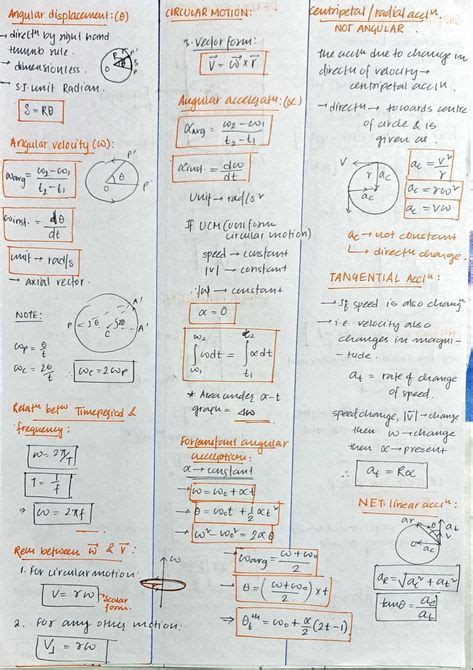 Angular displacement: (θ)
→ directⁿ by right hand
thumb rule.
→ dimensionless.
→ SI unit Radian.
S = Rθ
Angular velocity (ω):
ωavg = ω2-ω1 / t2-t1
ωinst. = dθ/dt
unit → rad/s
→ axial vector.
NOTE:
ωp = θ/t
ωc = 2θ/t ∴ ωc = 2ωp
Relatⁿ betⁿ Timeperiod &
frequency:
ω = 2π/T
T = 1/f
⇒ ω = 2πf
Reln between ω⃗ & v⃗ :
1. For circular motion:
V = rω → scalar form.
2. For any other motion:
V⊥ = rω
CIRCULAR MOTION:
3. vector form:
V⃗ = ω⃗ × r⃗
Angular acceleratⁿ: (α)
αavg = ω2-ω1 / t2-t1
αinst. = dω/dt
Unit → rad/s²
If UCM (uniform
circular motion)
speed → constant
|v| → constant
∴ |ω| → constant
α = 0
∫ω1^ω2 ωdt = ∫t1^t2 αdt
* Area under α-t
graph = Δω
For constant angular
acceleration:
α → constant
→ ω = ω0 + αt
→ θ = ω0t + 1/2 αt²
→ ω² - ω0² = 2αθ
→ ωavg = ω + ω0 / 2
→ θ = (ω+ω0 / 2) × t
→ θt^th = ω0 + α/2 (2t-1)
centripetal / radial acclⁿ:
NOT ANGULAR
The acclⁿ due to change in
directⁿ of velocity →
centripetal acclⁿ.
→ directⁿ → towards centre
of circle & is
given as.
ac = v²/r
ac = rω²
ac = vω
ac → not constant
↳ directⁿ change.
TANGENTIAL Acclⁿ:
→ If speed is also chang
→ i.e velocity also
changes in magni-
tude.
at = rate of change
of speed.
speed change, |V| → change
then ω → change
then α → present
∴ at = Rα
NET linear acclⁿ:
= √ac² + at²
tanθ =